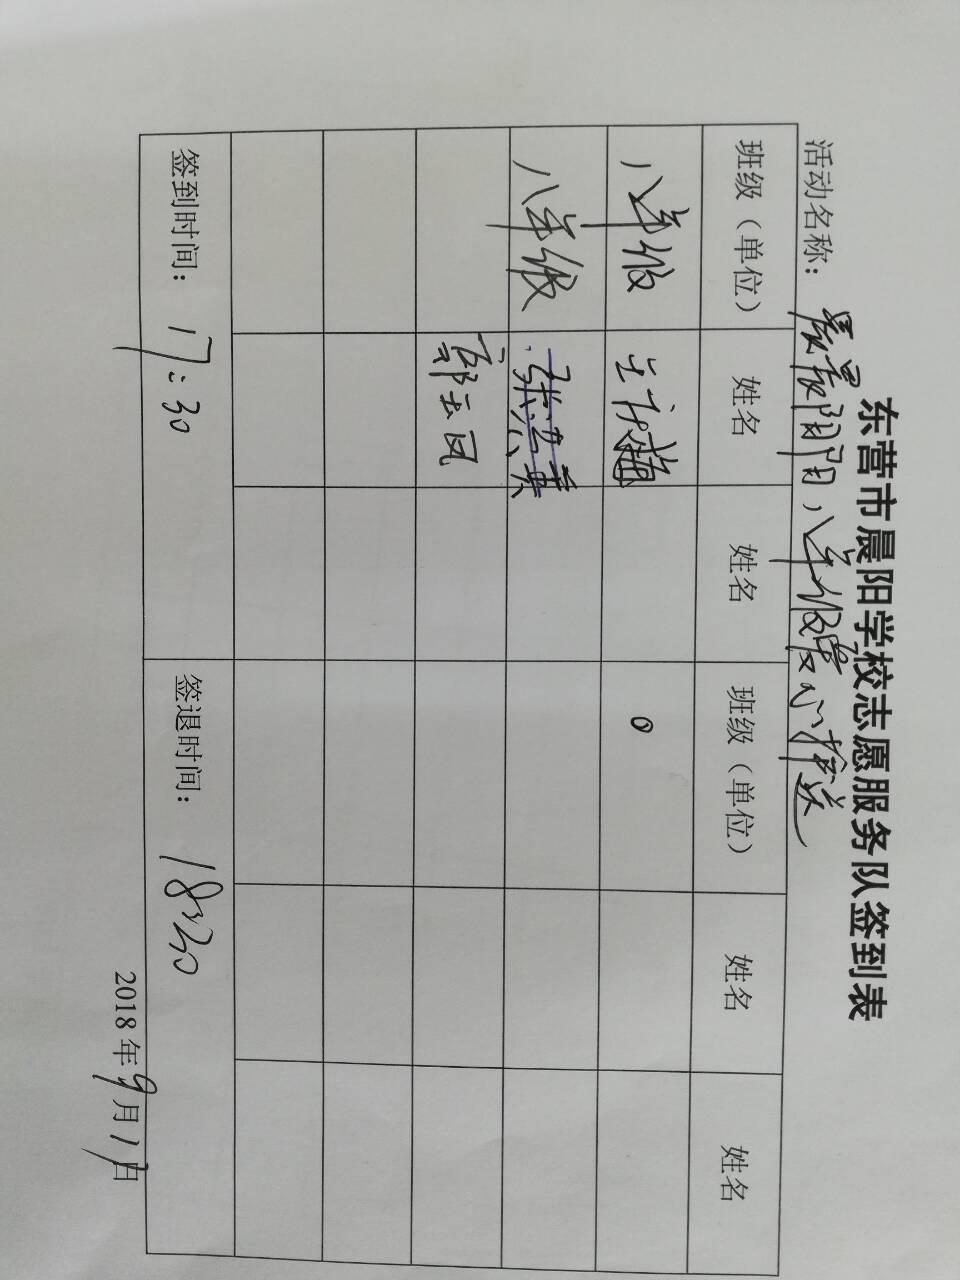 东营市晨阳学校志愿服务队签到表
活动名称：晨晨阳阳，八年级爱心护送
班级（单位） 姓名 姓名 班级（单位） 姓名 姓名
八年级
八年级
郭云凤
签到时间：17:30 签退时间：18:30
2018年9月17日